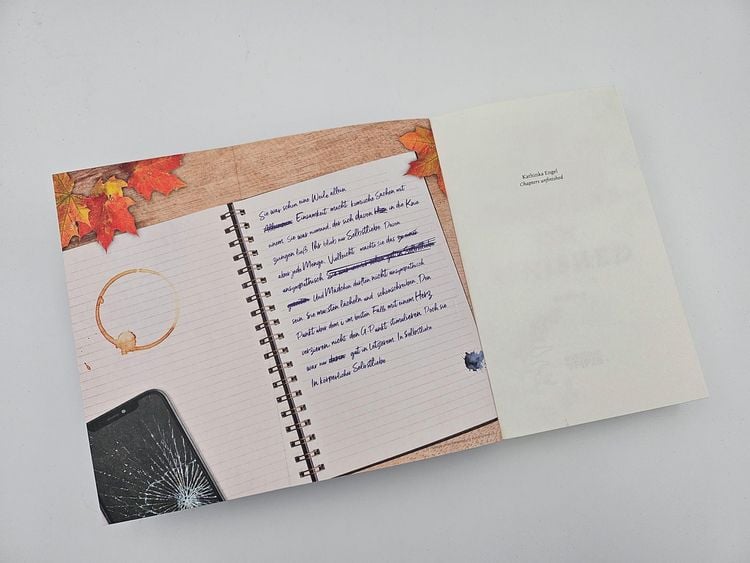 Sie war schon eine Weile allein.
Einsamkeit macht komische Sachen mit
einem. Sie war niemand, der sich davon in die Knie
zwingen ließ. Ihr blieb nur Selbstliebe. Davon
aber jede Menge. Vielleicht machte sie das
unsympathisch.
Und Mädchen durften nicht unsympathisch
sein. Sie mussten lächeln und schönschreiben. Den
Punkt über dem i, im besten Fall mit einem Herz
verzieren, nicht den G-Punkt stimulieren. Doch sie
war nur gut in Letzterem. In Selbstliebe.
In körperlicher Selbstliebe.
Kathinka Engel
Chapters unfinished